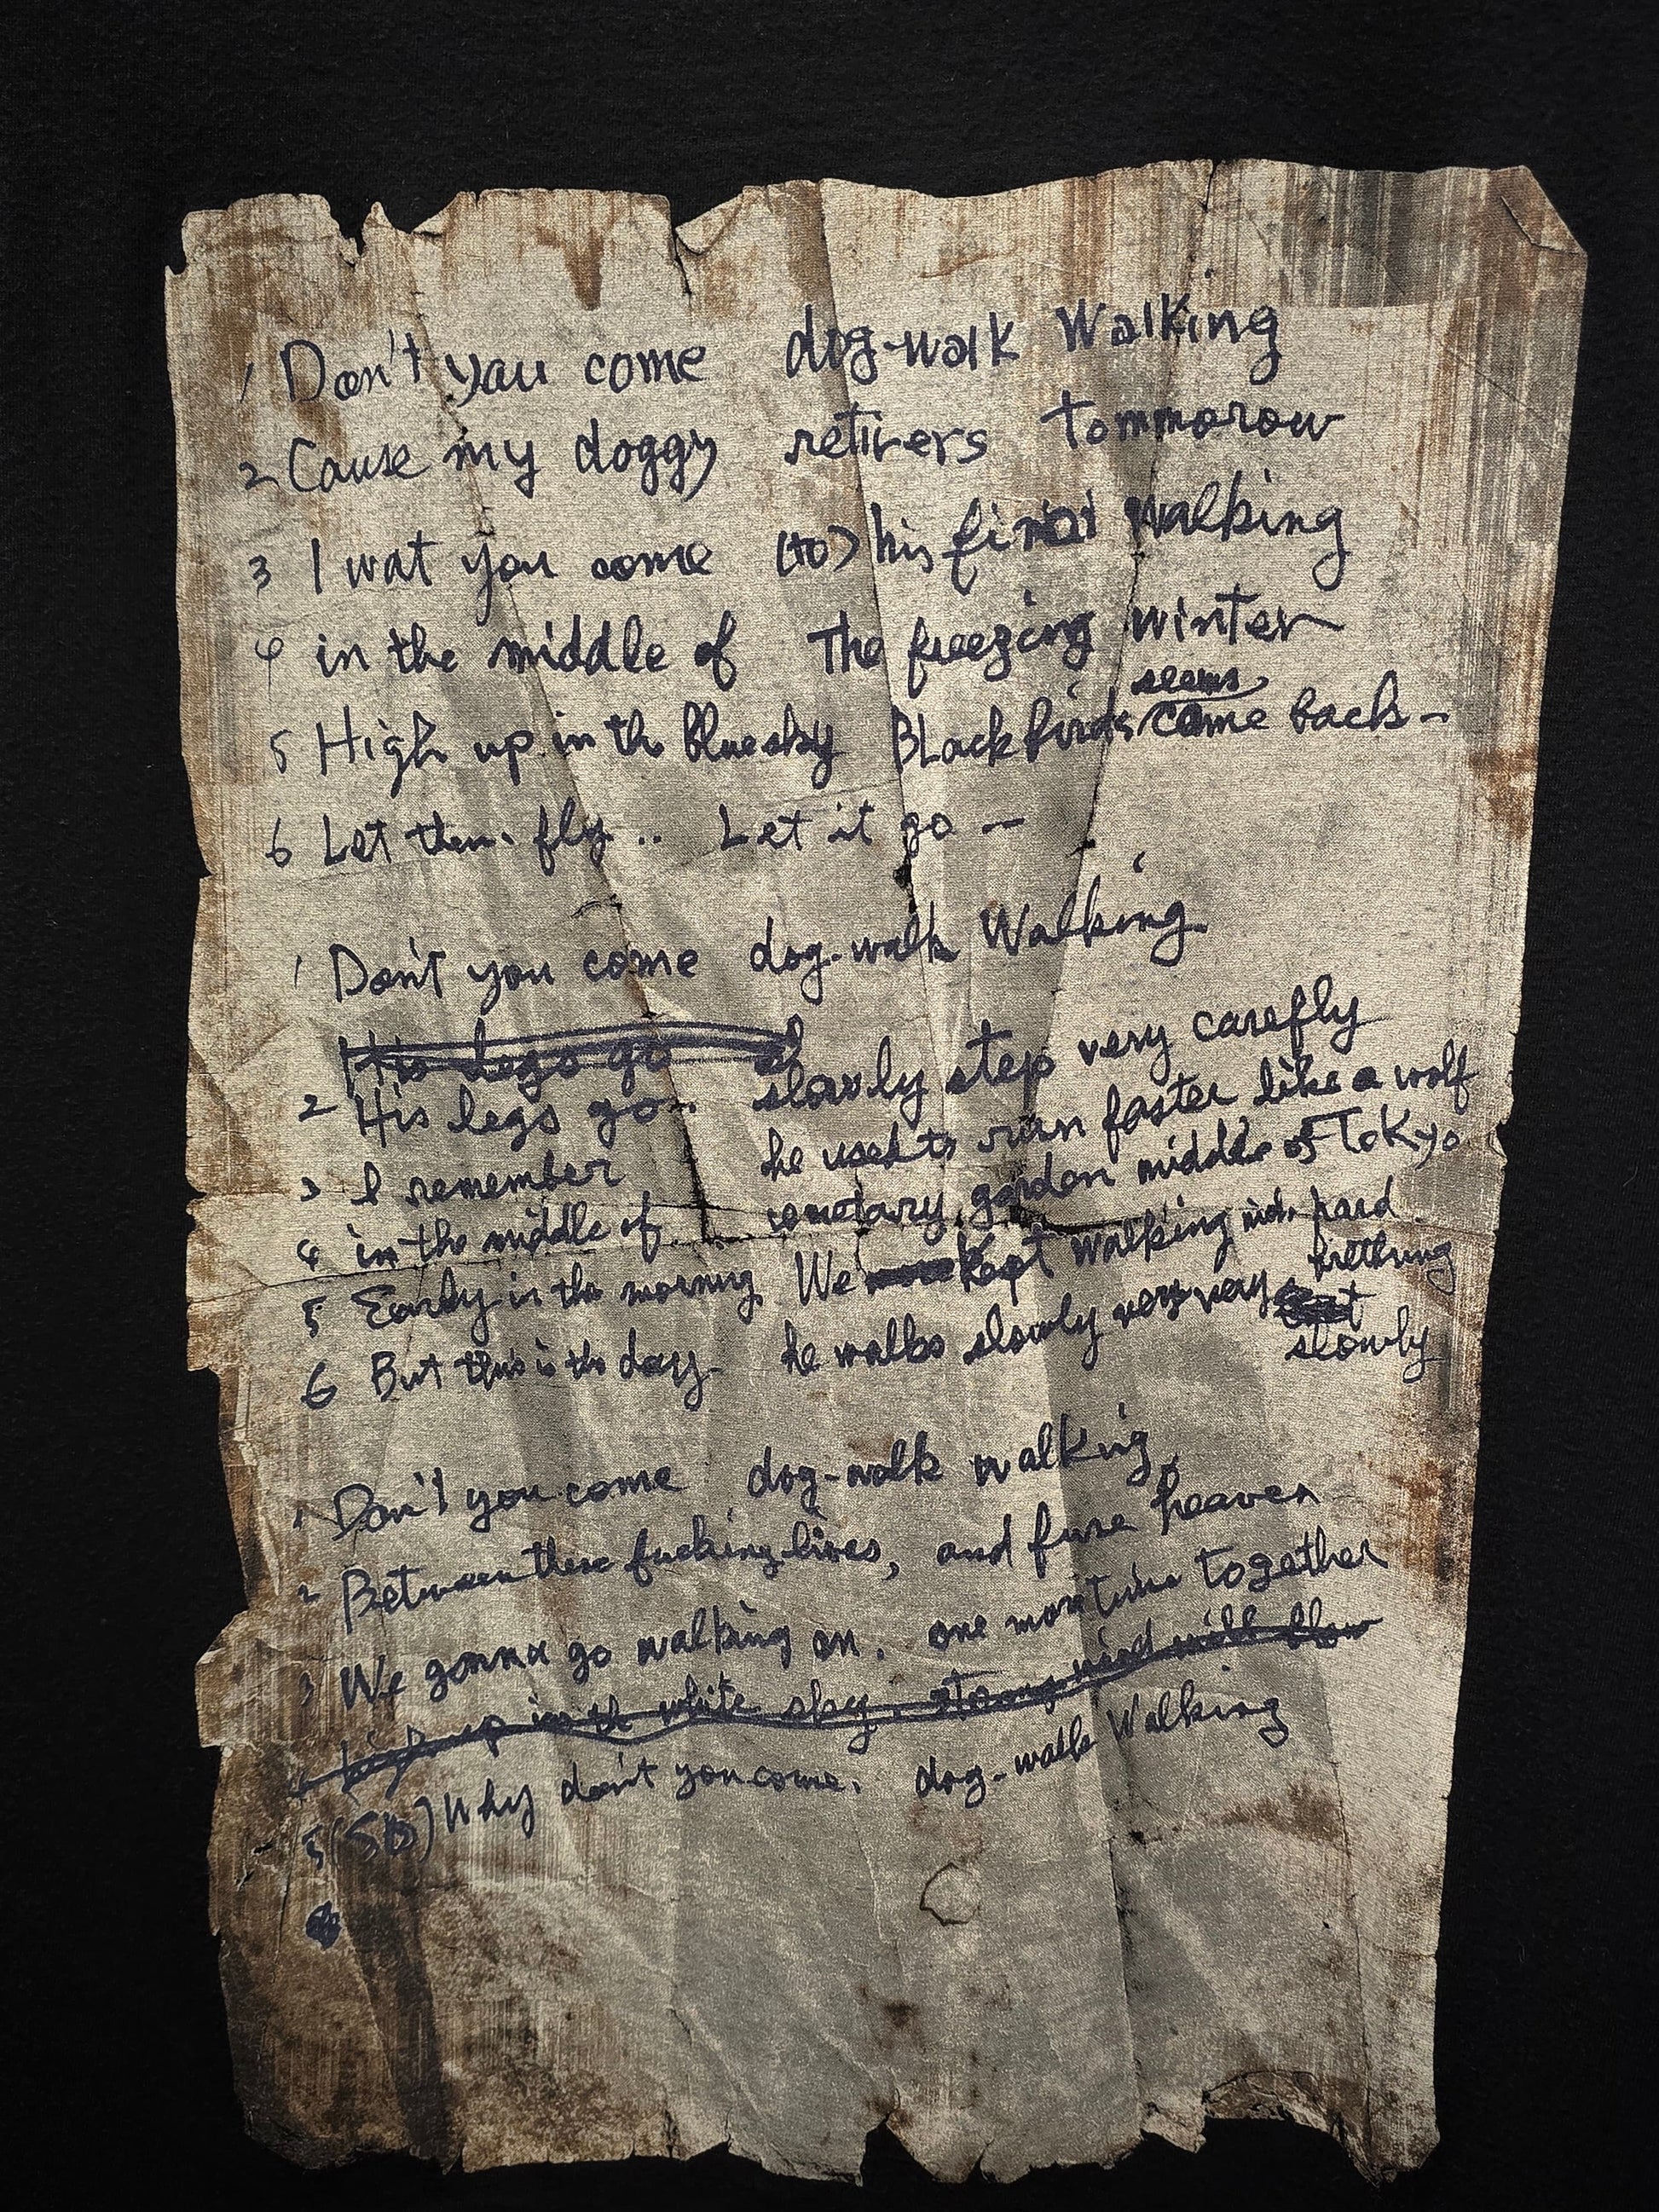 1 Don't you come dog-walk Walking
2 Cause my doggy retirers tommorow
3 I wat you come (to) his final walking
4 in the middle of The freezing winter
seems
5 High up in the blue sky BLack birds come back-
6 Let them fly.. Let it go —
1 Don't you come dog-walk Walking
His legs go
2 His legs go.. slowly step very carefly
3 I remember he used to run faster like a wolf
4 in the middle of.. cemetary gardon middle of ToKyo
5 Early in the morning We kept walking hard
6 But this is the day- he walks slowly very very
slowly
1 Don't you come dog-walk walking
2 Between these fucking lives, and heaven
3 We gonna go walking on. one more time together
4 high up in th white sky, strong wind will blow
5 Why don't you come. dog-walk Walking